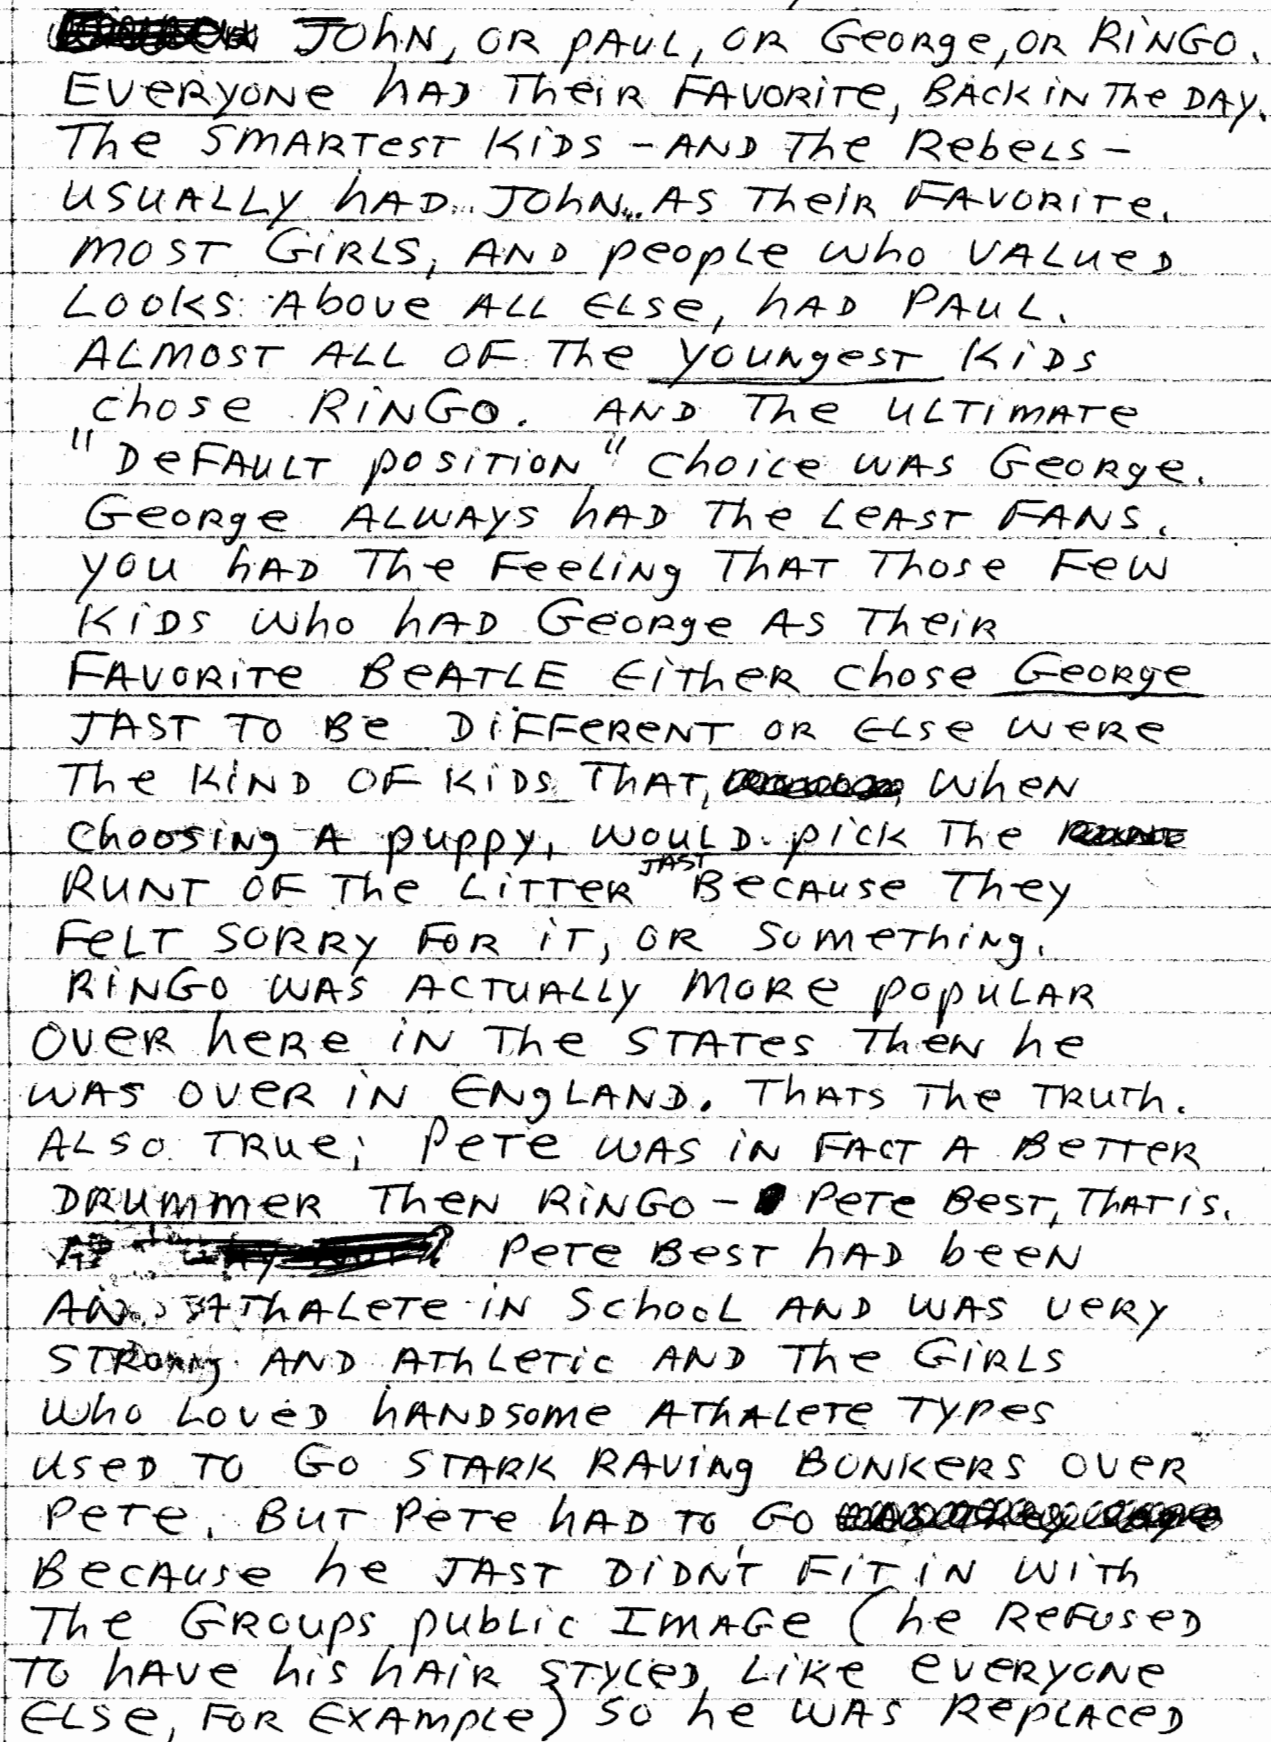 JOhN, OR PAUL, OR GeORge, OR RiNGO.
EVeRYONe hAD TheiR FAVORiTe, BACK iN The DAY.
The SMARTesT KiDS - AND The RebeLS -
USUALLY hAD JOhN AS TheiR FAVORiTe.
MOST GiRLS, AND peopLe who VALUeD
LOOKS Above ALL ELSe, hAD PAUL.
ALMOST ALL OF The YOUNgeST KiDS
chose RiNGO. AND The ULTiMATe
"DeFAULT pOSiTiON" choice WAS GeORge.
GeORge ALWAYS hAD The LeAST FANS.
YOU hAD The FeeLiNg ThAT Those Few
KiDS who hAD GeORge AS TheiR
FAVORiTe BeATLE EiTheR chose GeORge
JAST TO Be DiFFeReNT OR ELSe WeRe
The KiND OF KiDS ThAT, WheN
choosiNg A puppy, WOULD pick The
RUNT OF The LiTTeR JAST BecAUSe They
FeLT SORRY FOR iT, OR SOMeThiNg.
RiNGO WAS ACTUALLY MORe popULAR
OVeR heRe iN The STATes TheN he
WAS OVeR iN ENgLAND. ThATS The TRUTh.
ALSO TRUe; PeTe WAS iN FACT A BeTTeR
DRUMMeR TheN RiNGO - PeTe BeST, ThAT iS.
PeTe BeST hAD beeN
AN AThALeTe iN SchooL AND WAS VeRY
STRONg AND AThLeTic AND The GiRLS
who LoveD hANDsome AThALeTe TYPes
USeD TO GO STARK RAViNg BONKeRS OVeR
PeTe. BUT PeTe hAD TO GO
BecAUSe he JAST DiDN'T FiT iN WiTh
The GROUpS pUbLic IMAGe (he ReFUSeD
TO hAVe his hAiR STYLeD LiKe eVeRYONe
ELSe, FOR EXAMpLe) SO he WAS RepLACeD